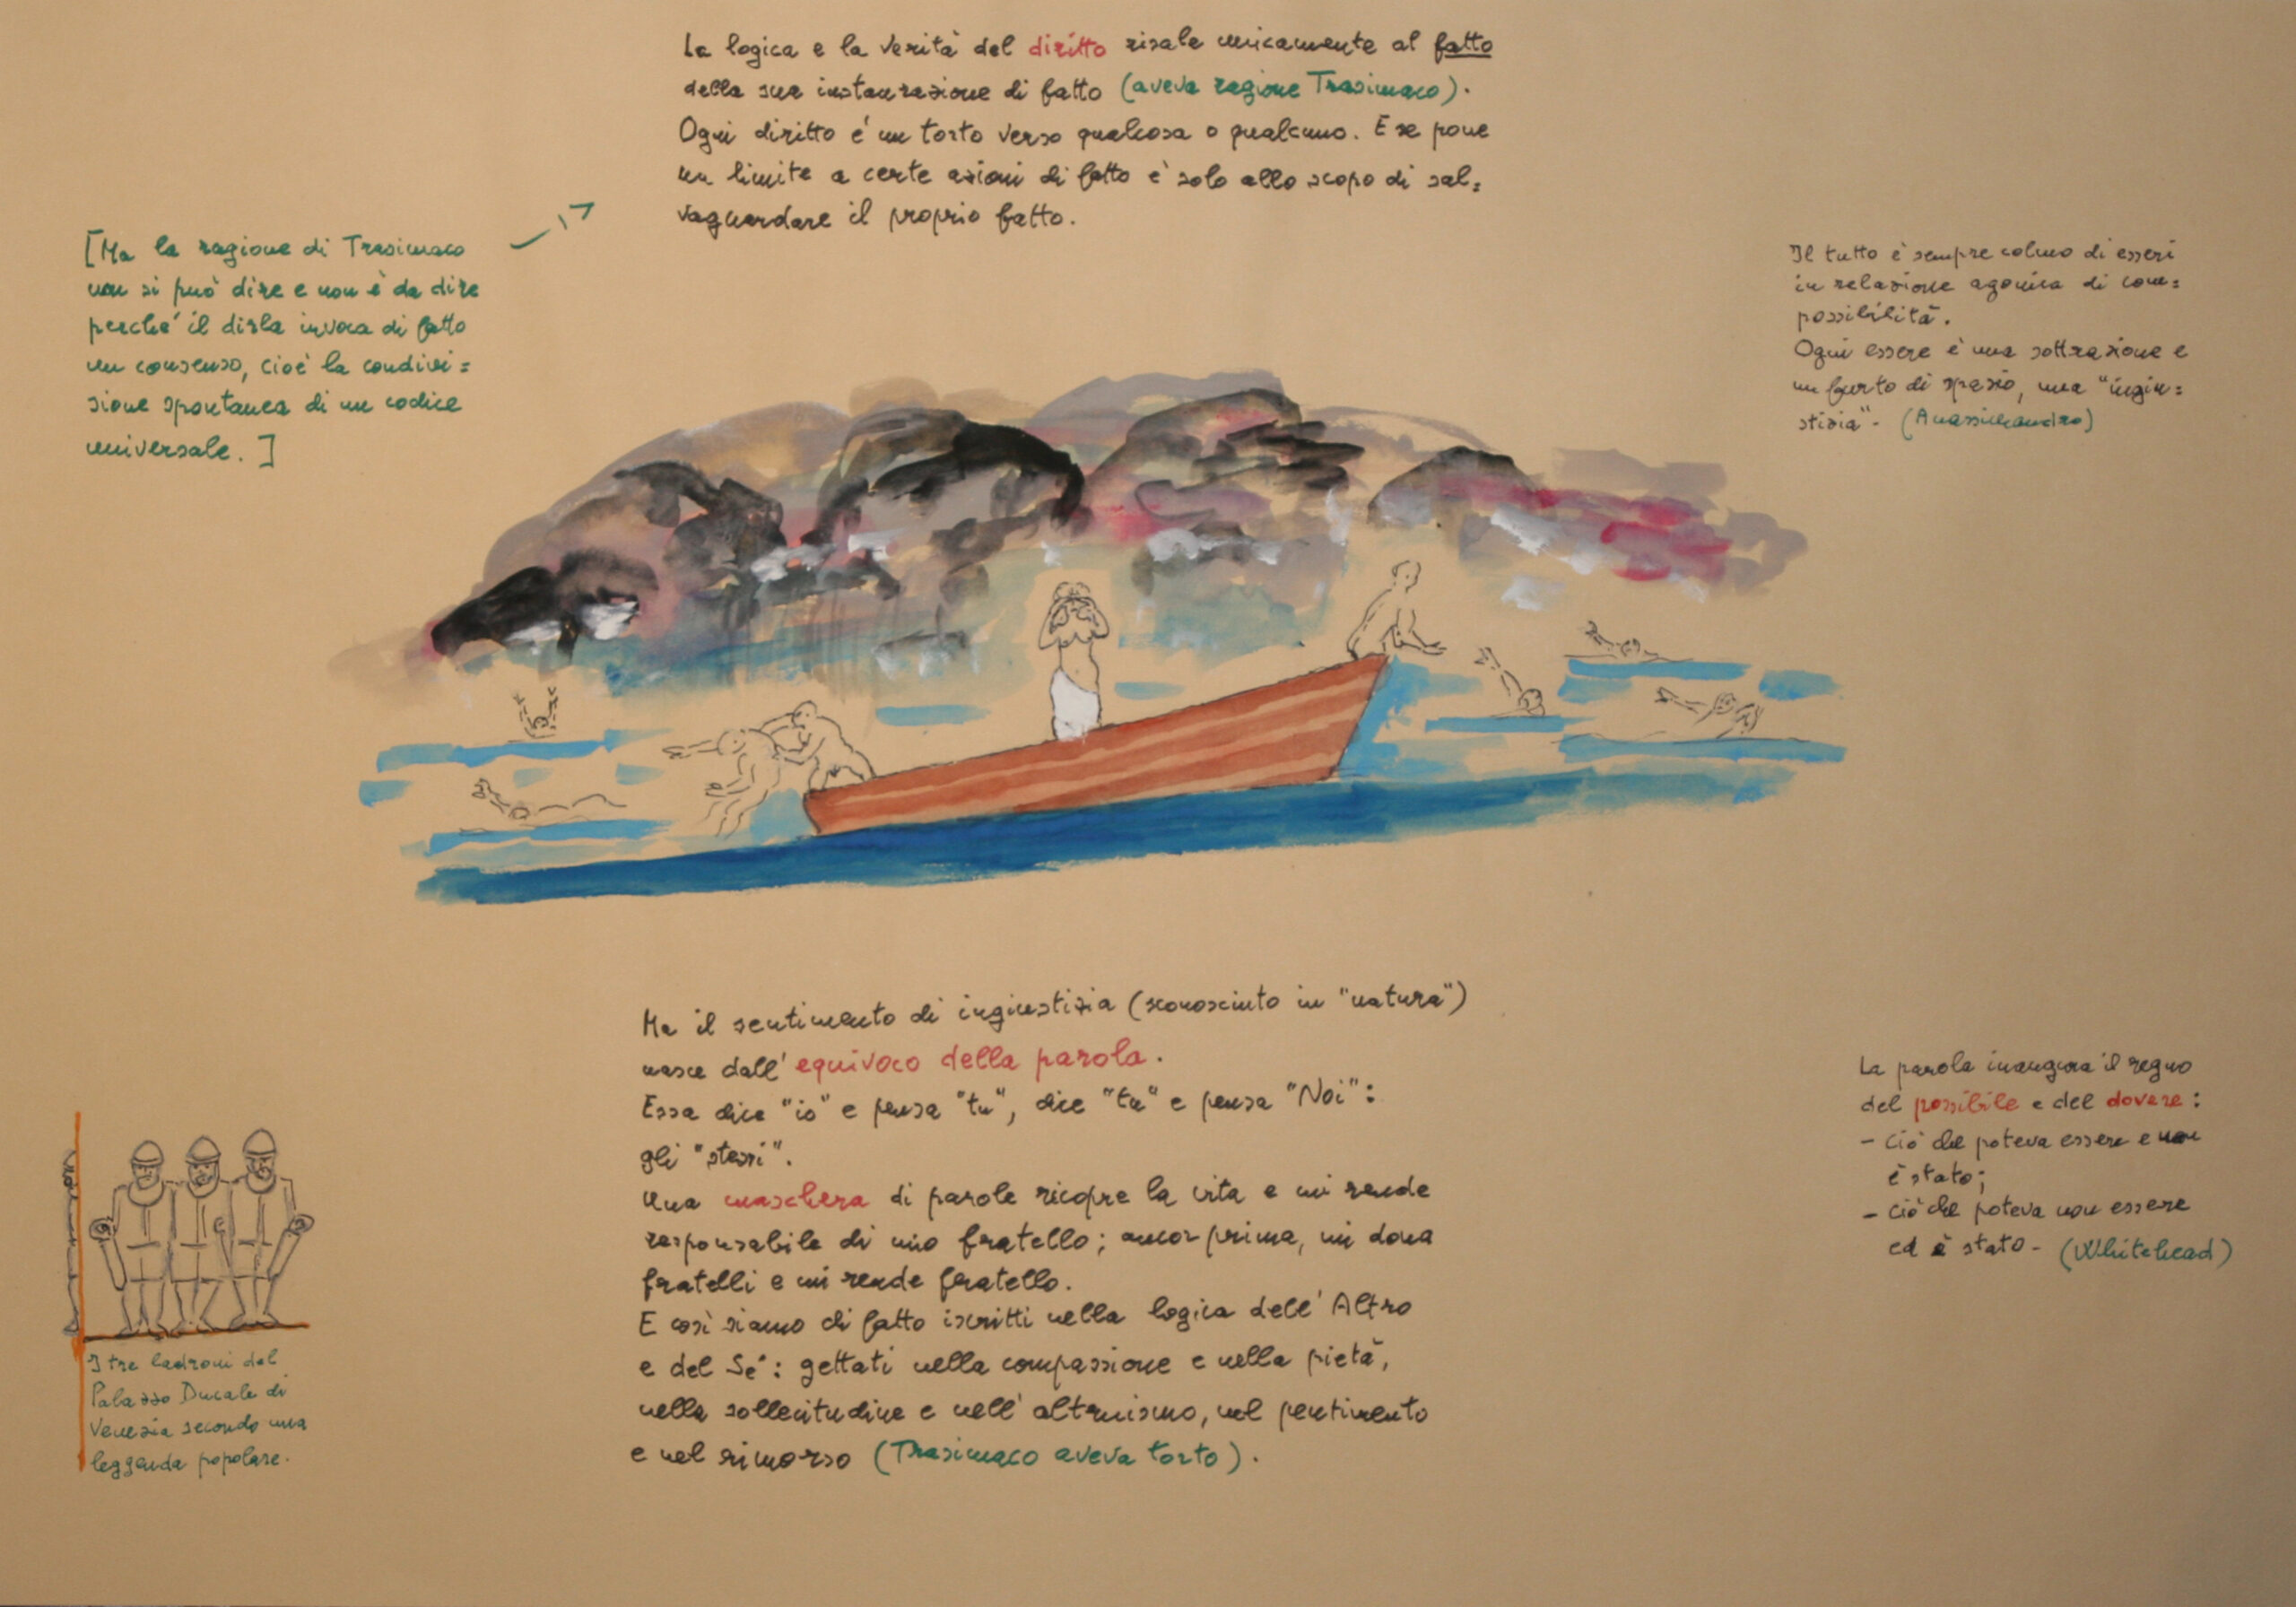 La logica e la verità del diritto risale unicamente al fatto
della sua instaurazione di fatto (aveva ragione Trasimaco).
Ogni diritto é un torto verso qualcosa o qualcuno. E se pone
un limite a certe azioni di fatto è solo allo scopo di sal=
vaguardare il proprio fatto.
[Ma la ragione di Trasimaco
non si può dire e non è da dire
perché il dirla invoca di fatto
un consenso, cioè la condivi=
sione spontanea di un codice
universale.]
Il tutto è sempre colmo di esseri
in relazione agonica di com=
possibilità.
Ogni essere è una sottrazione e
un furto di spazio, una "ingiu=
stizia". (Anassimandro)
Ma il sentimento di ingiustizia (sconosciuto in "natura")
nasce dall'equivoco della parola.
Essa dice "io" e pensa "tu", dice "tu" e pensa "Noi":
gli "stessi".
Una maschera di parole ricopre la vita e mi rende
responsabile di mio fratello; ancor prima, mi dona
fratelli e mi rende fratello.
E così siamo di fatto iscritti nella logica dell'Altro
e del Sé: gettati nella compassione e nella pietà,
nella sollecitudine e nell'altruismo, nel pentimento
e nel rimorso (Trasimaco aveva torto).
La parola inaugura il regno
del possibile e del dovere:
- ciò che poteva essere e non
è stato;
- ciò che poteva non essere
ed è stato. (Whitehead)
I tre ladroni del
Palazzo Ducale di
Venezia secondo una
leggenda popolare.